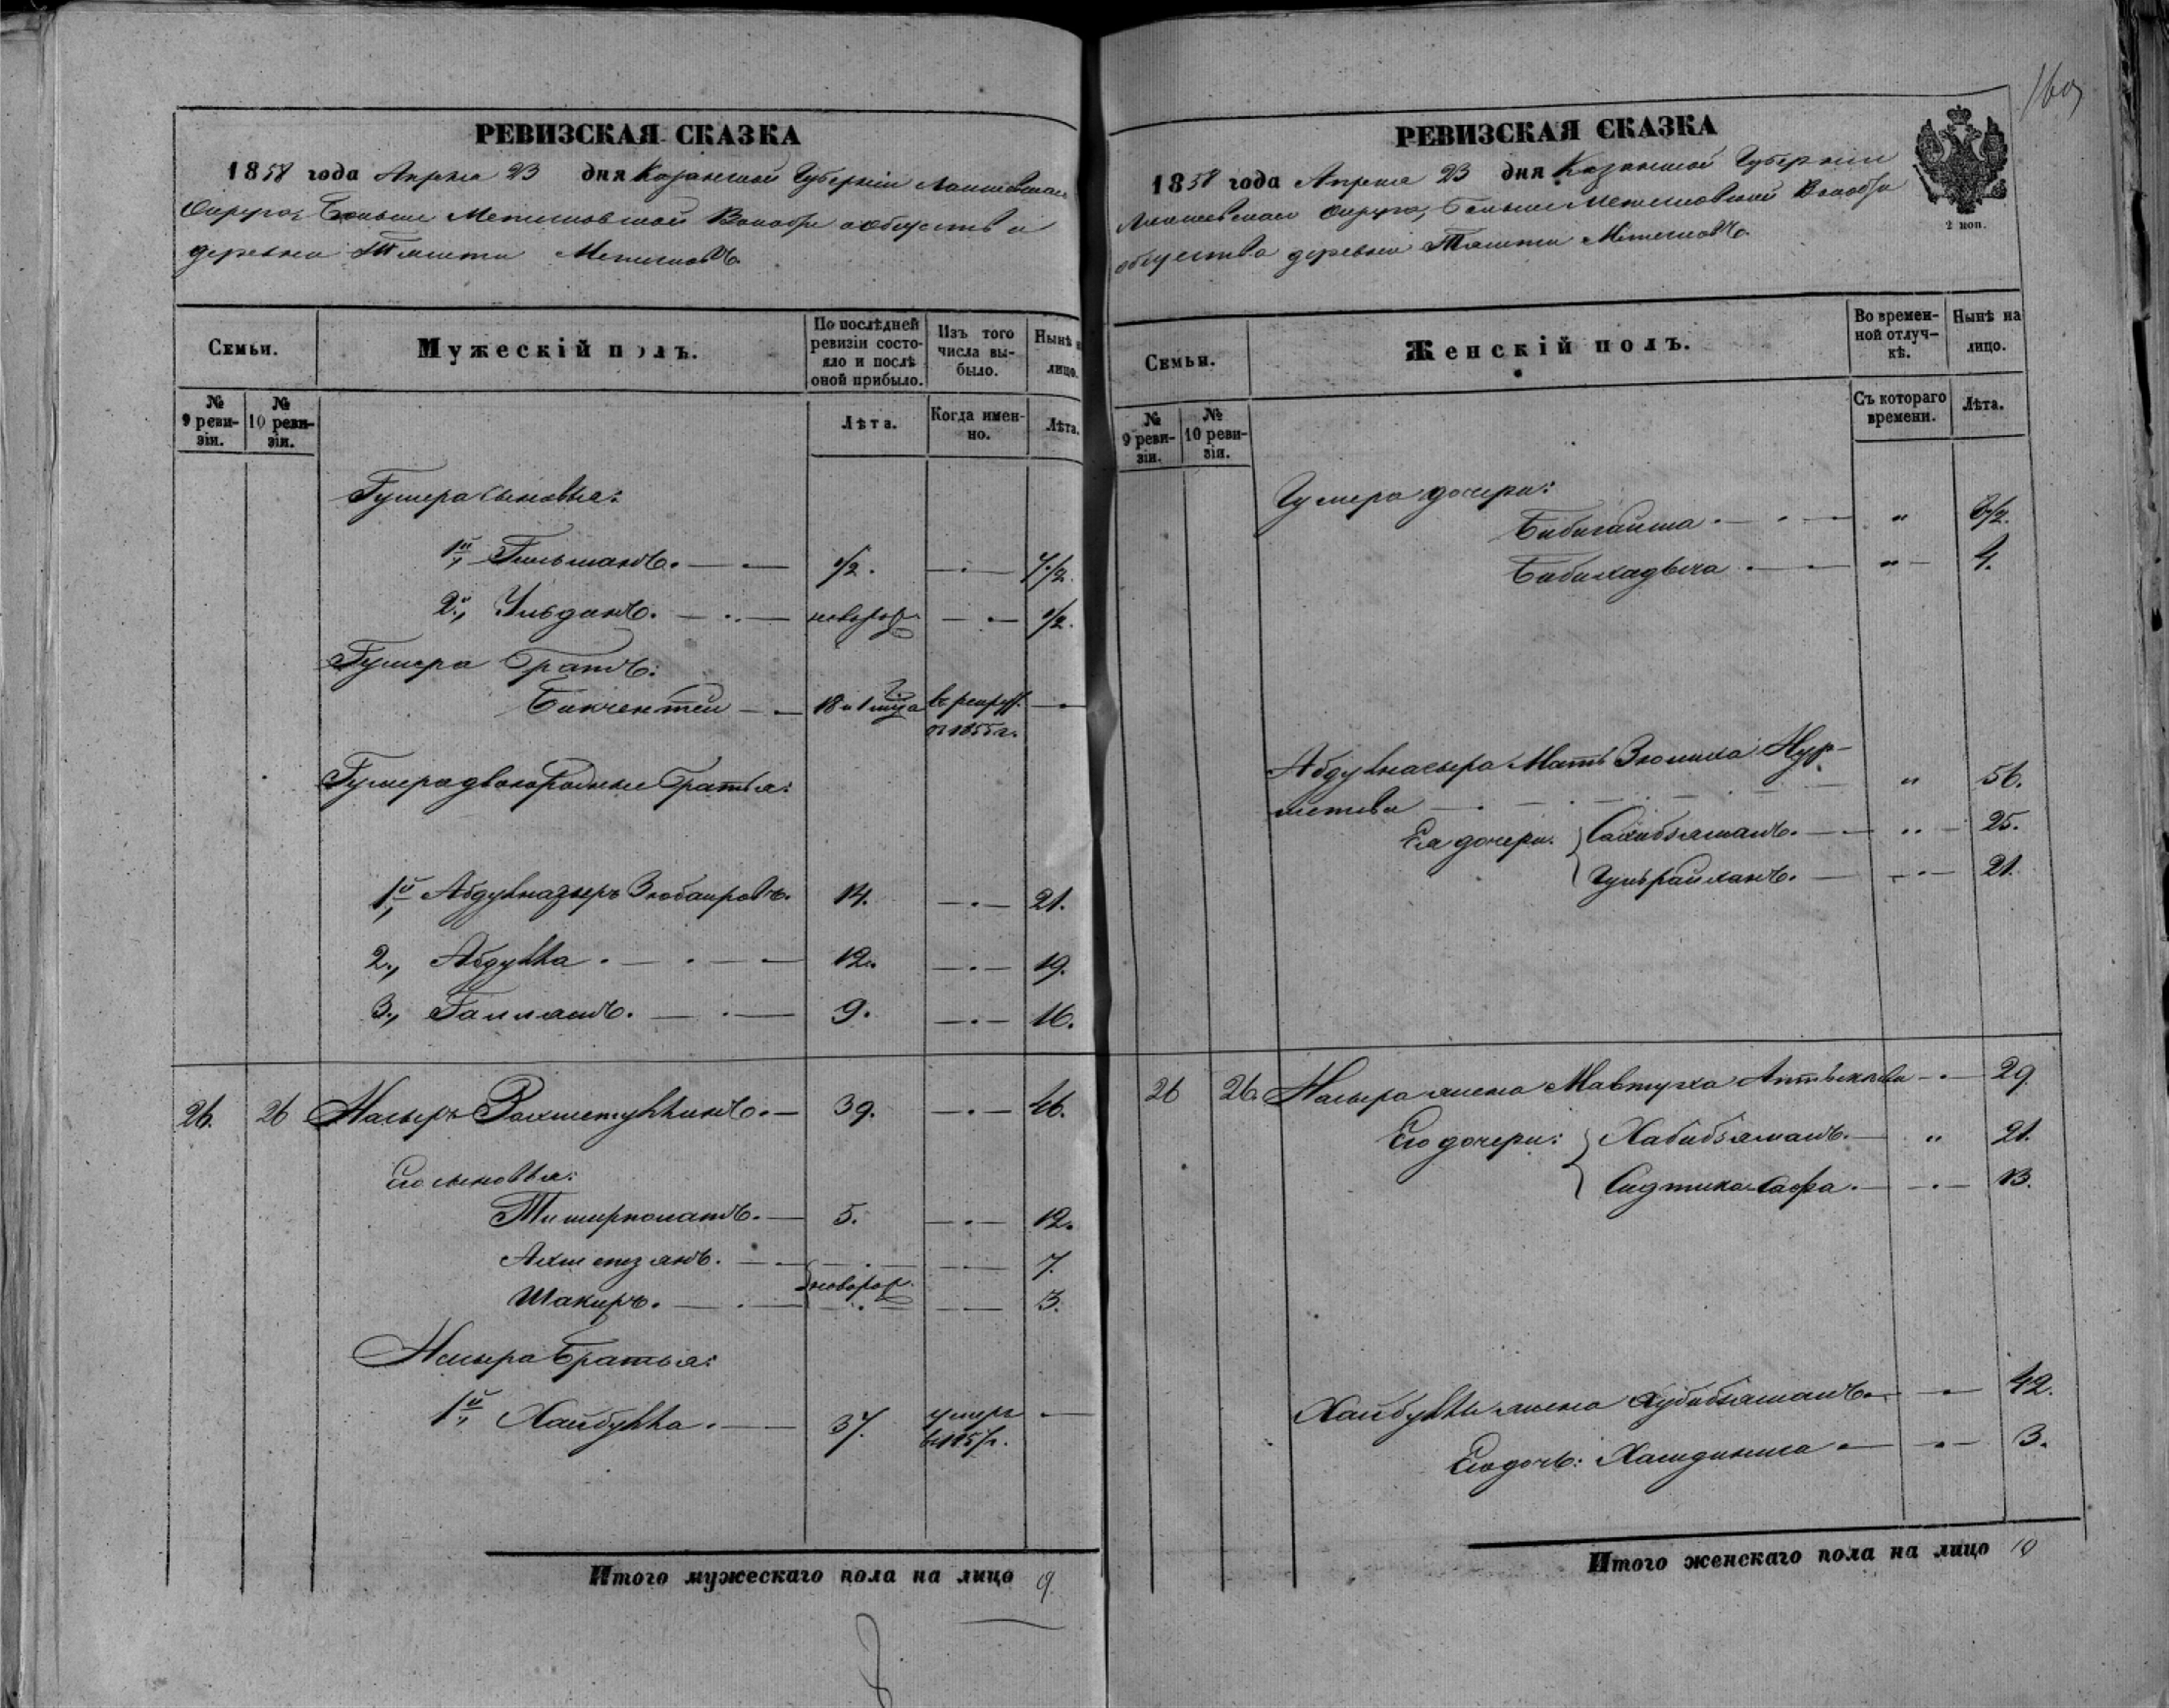 160
РЕВИЗСКАЯ СКАЗКА
1858 года Апреля 23 дня Казанской Губерніи Лаишевскаго
Округа, Больше Метесковской Волости общества
деревни Тямти Метесковъ
Семьи.
Мужескій полъ.
По послѣдней ревизіи состояло и послѣ оной прибыло.
Изъ того числа выбыло.
Нынѣ на лицо.
№ 9 ревизіи.
№ 10 ревизіи.
Лѣта.
Когда именно.
Лѣта.
Гумера сыновья:
1й, Гильманъ. 1/2. 7 1/2.
2й, Ульданъ. новорож. 1/2.
Гумера братъ:
Бикчентей 18 и 1 въ рекрут. 1855 г.
Гумера двоюродные братья:
1й, Абдулназыръ Зюбаировъ. 14. 21.
2., Абдулла. 12. 19.
3., Галлямъ. 9. 16.
26. 26 Насыръ Рахметуллинъ. 39. 46.
Его сыновья:
Тимирполатъ. 5. 12.
Ахметзянъ. 7.
новорож.
Шакиръ. 3.
Насыра братья:
1й, Хайбулла. 37. умеръ
Итого мужескаго пола на лицо 9.
РЕВИЗСКАЯ СКАЗКА
1858 года Апреля 23 дня Казанской Губерніи
Лаишевскаго Округа, Больше Метесковской Волости
общества деревни Тямти Метесковъ
2 коп.
Семьи.
Женскій полъ.
Во временной отлучкѣ.
Нынѣ на лицо.
№ 9 ревизіи.
№ 10 ревизіи.
Съ котораго времени.
Лѣта.
Гумера дочери:
Бибигайша. "
Бибихадыча. " 4.
Абдулнасыра мать Зюлиха Нур-
метева " 56.
Ея дочери: Сахибзямалъ. " 25.
Гульрайханъ. 21.
26 26. Насыра жена Мавтуха Аптыкова 29
Его дочери: Хабибзямалъ. " 21.
Сидтика Сафа. 13.
Хайбуллы жена Хубибзямалъ. 42.
Его дочь: Хамдиниса 3.
Итого женскаго пола на лицо 10